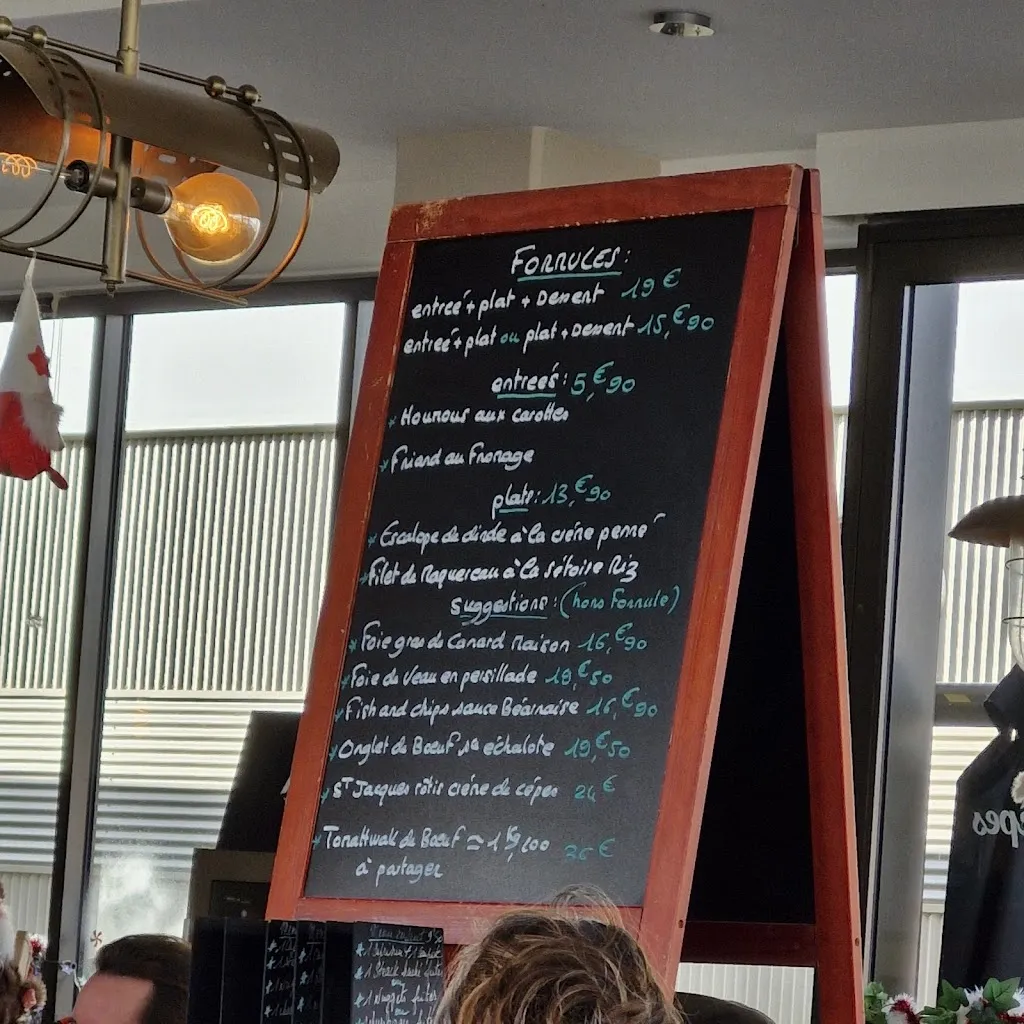 FORMULES :
entreé + plat + Dessert 19 €
entreé + plat ou plat + Dessert 15,€90
entreés : 5,€90
* Houmous aux carottes
* Friand au Fromage
plats : 13,€90
* Escalope de dinde à la crème penne
* Filet de Maquereau à la sétoise Riz
suggestions : (hors Formule)
* Foie gras de Canard Maison 16,€90
* Foie de Veau en persillade 19,€50
* Fish and chips sauce Béarnaise 16,€90
* Onglet de Bœuf, sa echalote 19,€50
* ST Jacques rôtis crème de cépes 24 €
de Bœuf ≃ 1 Kg,
à partager